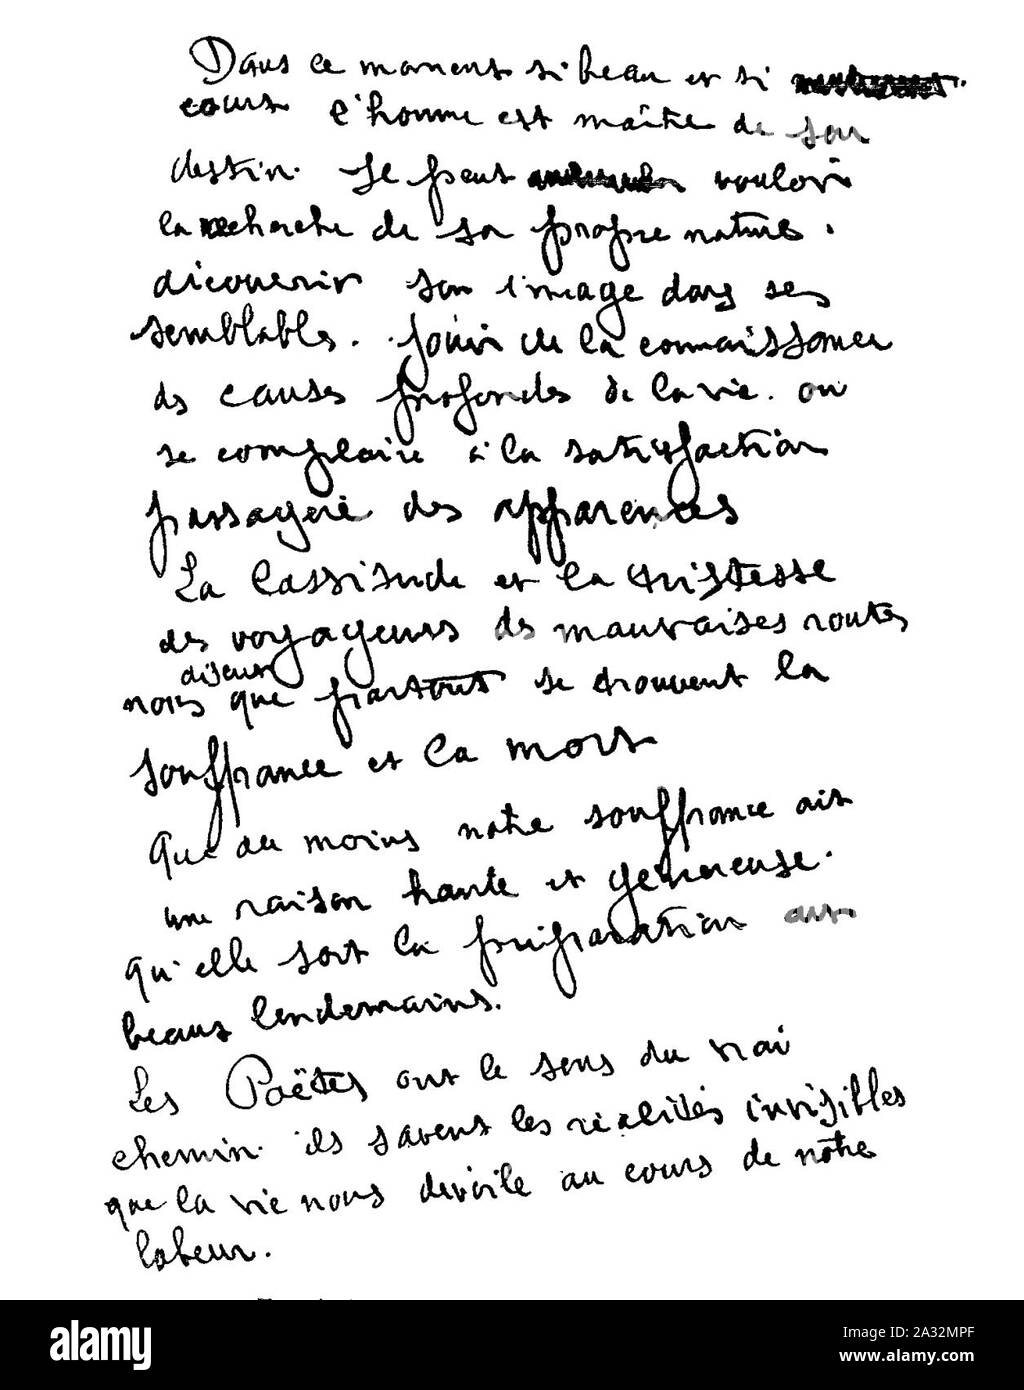 Dans ce moment si beau et si
court l'homme est maître de son
destin. Il peut vouloir
la recherche de sa propre nature.
découvrir son image dans ses
semblables. Jouir de la connaissance
des causes profondes de la vie. ou
se complaire à la satisfaction
passagère des apparences
La lassitude et la tristesse
des voyageurs des mauvaises routes
disent
nous que partout se trouvent la
souffrance et la mort
Que du moins notre souffrance ait
une raison haute et généreuse.
qu'elle soit la préparation aux
beaux lendemains.
Les Poëtes ont le sens du vrai
chemin. ils savent les réalités invisibles
que la vie nous dévoile au cours de notre
labeur.
alamy
Image ID: 2A32MPF
www.alamy.com